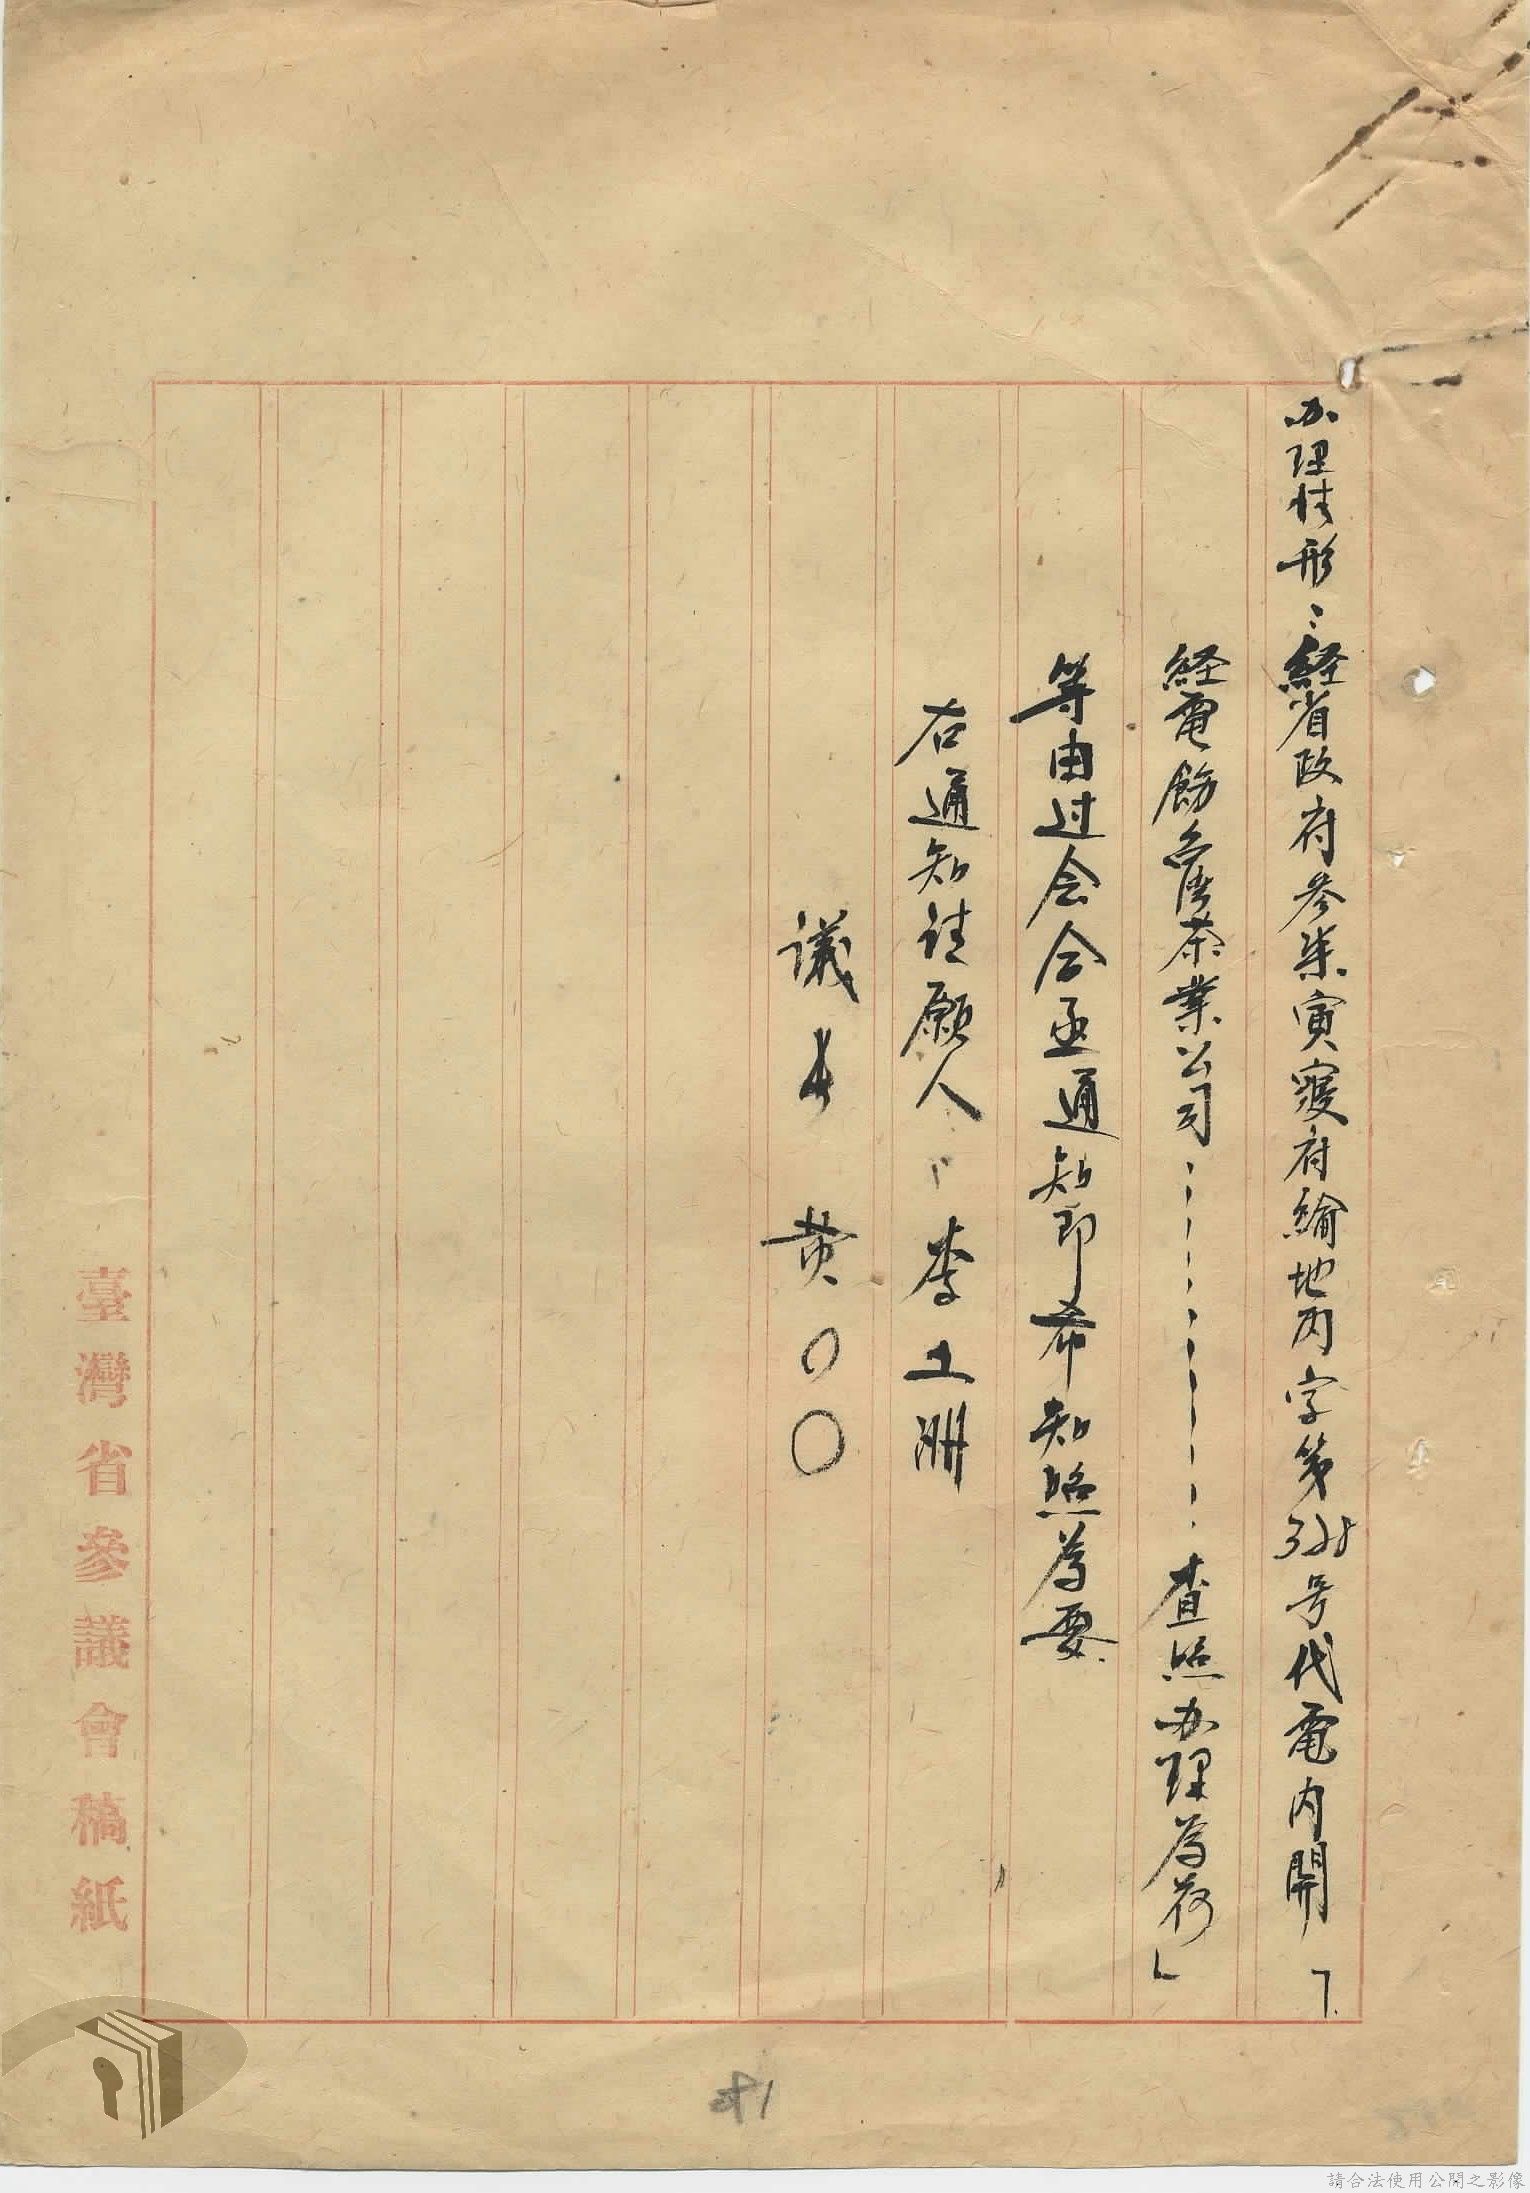 办理情形：経省政府参柒寅寢府綸地丙字第328号代電内開「
経電飭台湾茶業公司…………查照办理為荷」
等由过会合亟通知即希知照為要
右通知請願人：李土洲
議長 黄〇〇
臺灣省參議會稿紙
請合法使用公開之影像